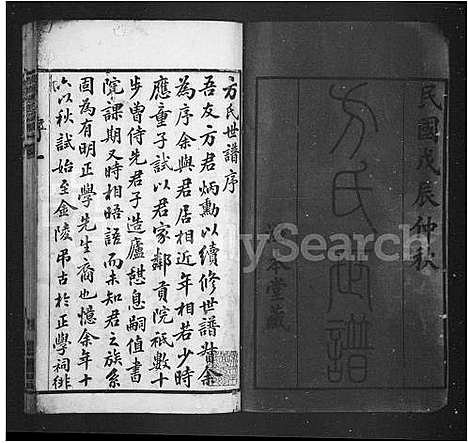 民國戊辰仲秋
方氏世譜
本堂藏
方氏世譜序
吾友方君炳勳以續修世譜䓁余
為序余與君居相近年相若少時
應童子試以君家鄰貢院祇數十
步曾侍先君子造廬憩息嗣值書
院課期又時相晤語而未知君之族系
固為有明正學先生裔也憶余年十
六以秋試始至金陵弔古於正學祠徘
MyHeritage FamilySearch